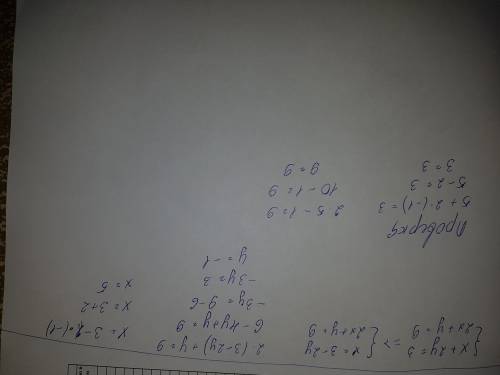 {x+2y=3 => {x=3-2y
{2x+y=9 {2x+y=9
2·(3-2y)+y=9
6-4y+y=9
-3y=9-6
-3y=3
y=-1
x=3-2·(-1)
x=3+2
x=5
Проверка
5+2·(-1)=3
5-2=3
3=3
2·5-1=9
10-1=9
9=9